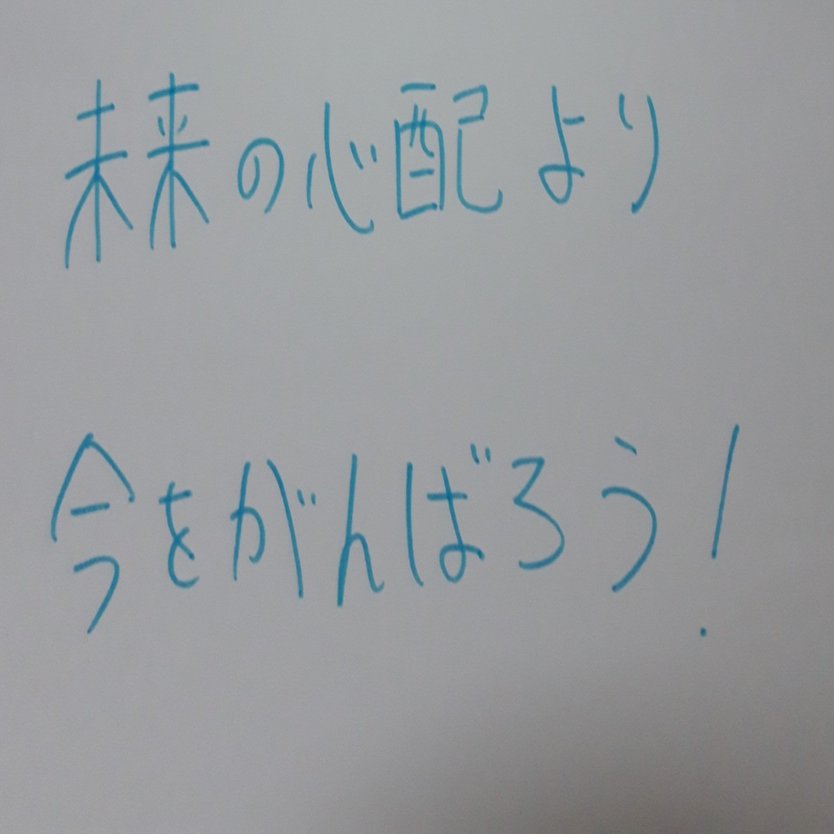 未来の心配より
今をがんばろう!